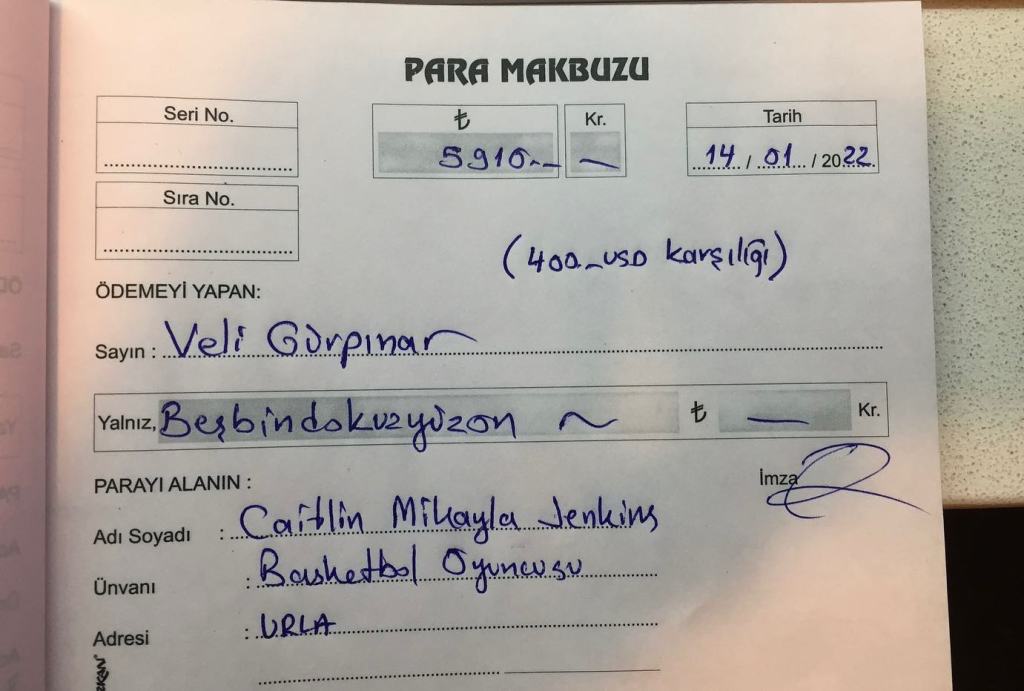 PARA MAKBUZU
Seri No.
₺ Kr.
5910.- —
Tarih
14 / 01 / 2022
Sıra No.
(400.-USD karşılığı)
ÖDEMEYİ YAPAN:
Sayın : Veli Gürpınar
Yalnız, Beşbindokuzyüzon ~ ₺ — Kr.
PARAYI ALANIN :
İmza
Adı Soyadı : Caitlin Mikayla Jenkins
Ünvanı : Basketbol Oyuncusu
Adresi : URLA